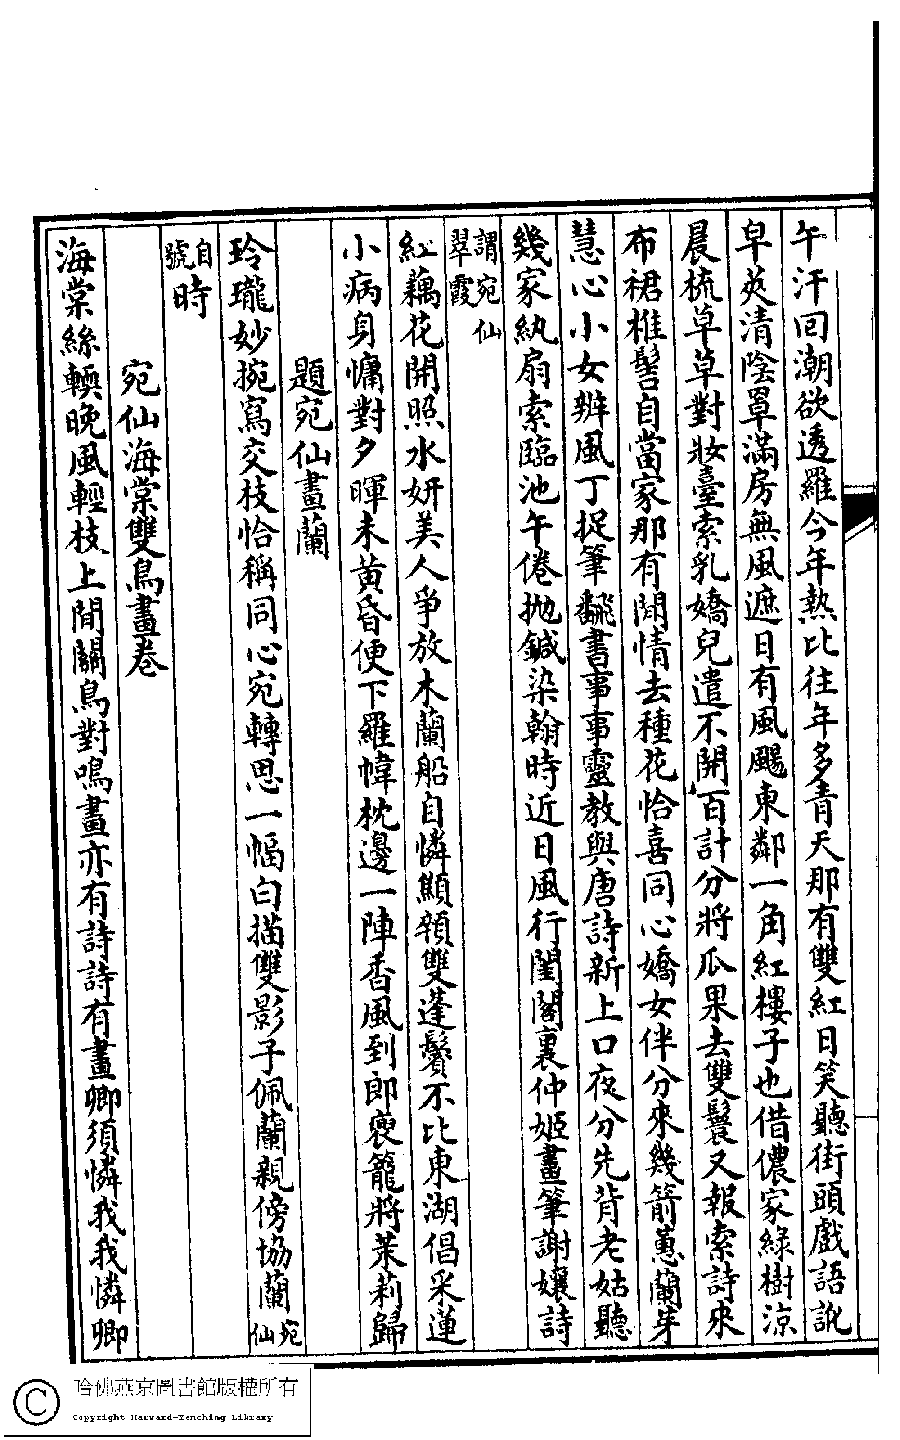 午汗回潮欲透羅今年熱比往年多青天那有雙紅日笑聽街頭戲語訛
皁莢清陰罩滿房無風遮日有風颺東鄰一角紅樓子也借儂家綠樹涼
晨梳草草對妝臺索乳嬌兒遣不開百計分將瓜果去雙鬟又報索詩來
布裙椎髻自當家那有閒情去種花恰喜同心嬌女伴分來幾箭蕙蘭芽
慧心小女辨風丁捉筆翻書事事靈教與唐詩新上口夜分先背老姑聽
幾家紈扇索臨池午倦拋鍼染翰時近日風行閨閣裏仲姬畫筆謝孃詩
謂宛仙
翠霞
紅藕花開照水妍美人爭放木蘭船自憐顦顇雙蓬鬢不比東湖倡采蓮
小病身慵對夕暉未黃昏便下羅幃枕邊一陣香風到郎褎籠將茉莉歸
題宛仙畫蘭
玲瓏妙捥寫交枝恰稱同心宛轉思一幅白描雙影子佩蘭親傍協蘭宛仙
自號時
宛仙海棠雙鳥畫卷
海棠絲輭晚風輕枝上閒關鳥對鳴畫亦有詩詩有畫卿須憐我我憐卿
哈佛燕京圖書館版權所有
Copyright Harvard-Yenching Library